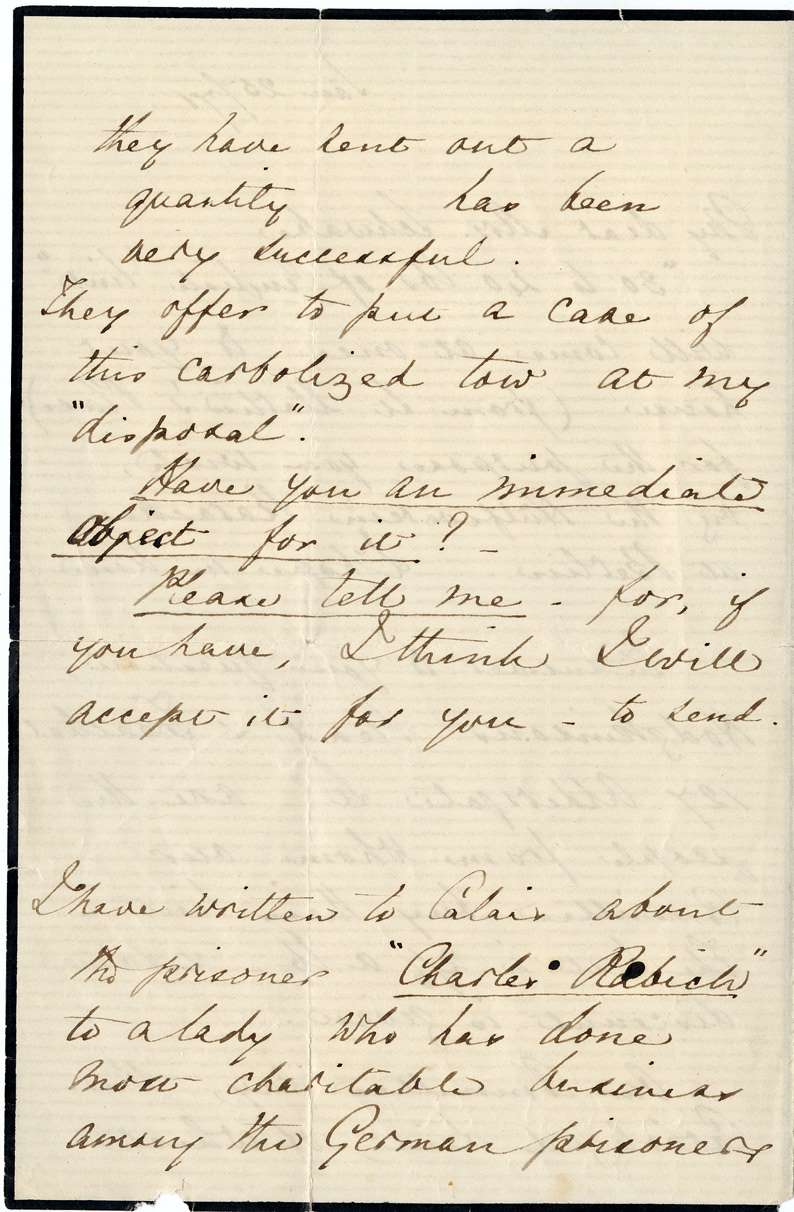 they have sent out a
quantity has been
very successful.
They offer to put a case of
this carbolized tow at my
"disposal".
Have you an immediate
object for it? -
Please tell me - for, if
you have, I think I will
accept it for you - to send.
I have written to Calais about
the prisoner "Charles Rabich"
to a lady who has done
most charitable business
among the German prisoners